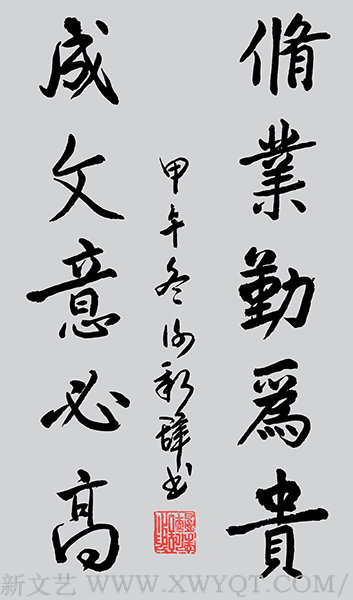 脩業勤爲貴
成文意必高
甲午冬
書
新文艺 www.xwyqt.com/